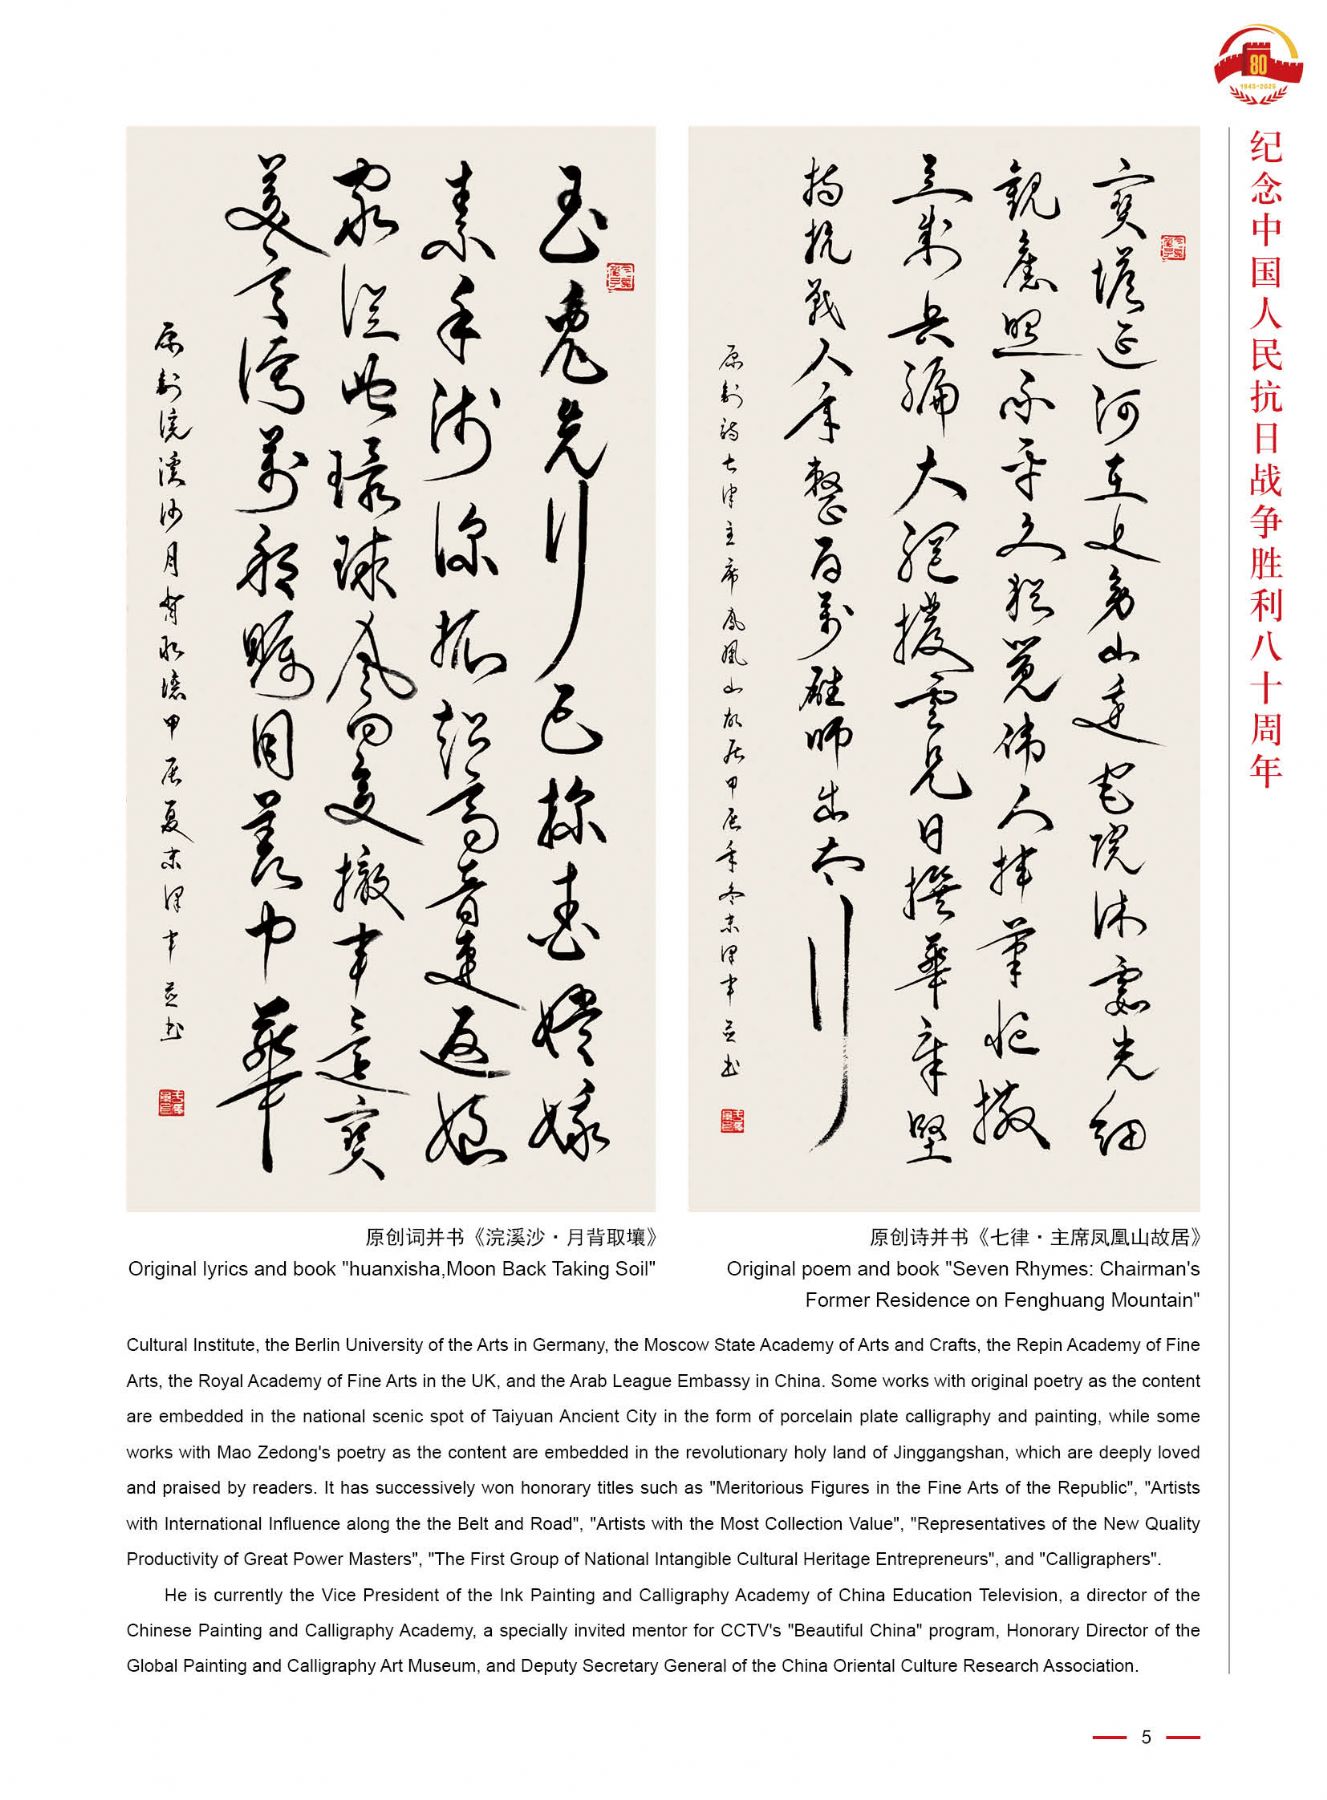 80
1945-2025
纪念中国人民抗日战争胜利八十周年
寶塔延河在足旁山邊老院沐霞光細
觀舊照不平久猶覺偉人揮筆忙撒
三萬兵編大網撥雲見日撰華章堅
持抗戰八年整百萬雄師出太行
原創詩七律主席鳳凰山故居甲辰年冬末澤軍並書
玉兔先行已探查嫦娥
素手淺深抓超高音速返娘
家從此環球風向變軍這寶
美言誇萬邦矚目羨中華
原創浣溪沙月背取壤甲辰夏末澤軍並書
原创词并书《浣溪沙·月背取壤》
Original lyrics and book "huanxisha,Moon Back Taking Soil"
原创诗并书《七律·主席凤凰山故居》
Original poem and book "Seven Rhymes: Chairman's
Former Residence on Fenghuang Mountain"
Cultural Institute, the Berlin University of the Arts in Germany, the Moscow State Academy of Arts and Crafts, the Repin Academy of Fine
Arts, the Royal Academy of Fine Arts in the UK, and the Arab League Embassy in China. Some works with original poetry as the content
are embedded in the national scenic spot of Taiyuan Ancient City in the form of porcelain plate calligraphy and painting, while some
works with Mao Zedong's poetry as the content are embedded in the revolutionary holy land of Jinggangshan, which are deeply loved
and praised by readers. It has successively won honorary titles such as "Meritorious Figures in the Fine Arts of the Republic", "Artists
with International Influence along the the Belt and Road", "Artists with the Most Collection Value", "Representatives of the New Quality
Productivity of Great Power Masters", "The First Group of National Intangible Cultural Heritage Entrepreneurs", and "Calligraphers".
He is currently the Vice President of the Ink Painting and Calligraphy Academy of China Education Television, a director of the
Chinese Painting and Calligraphy Academy, a specially invited mentor for CCTV's "Beautiful China" program, Honorary Director of the
Global Painting and Calligraphy Art Museum, and Deputy Secretary General of the China Oriental Culture Research Association.
5